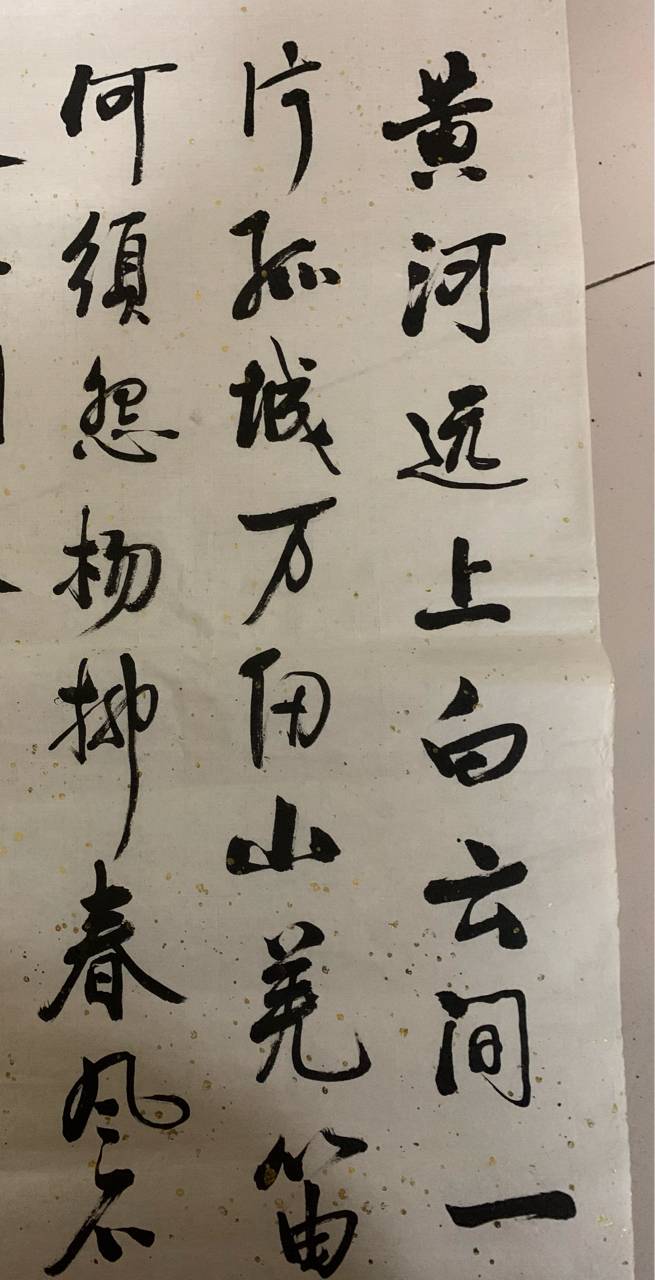 黄河远上白云间一
片孤城万仞山羌笛
何须怨杨柳春风不